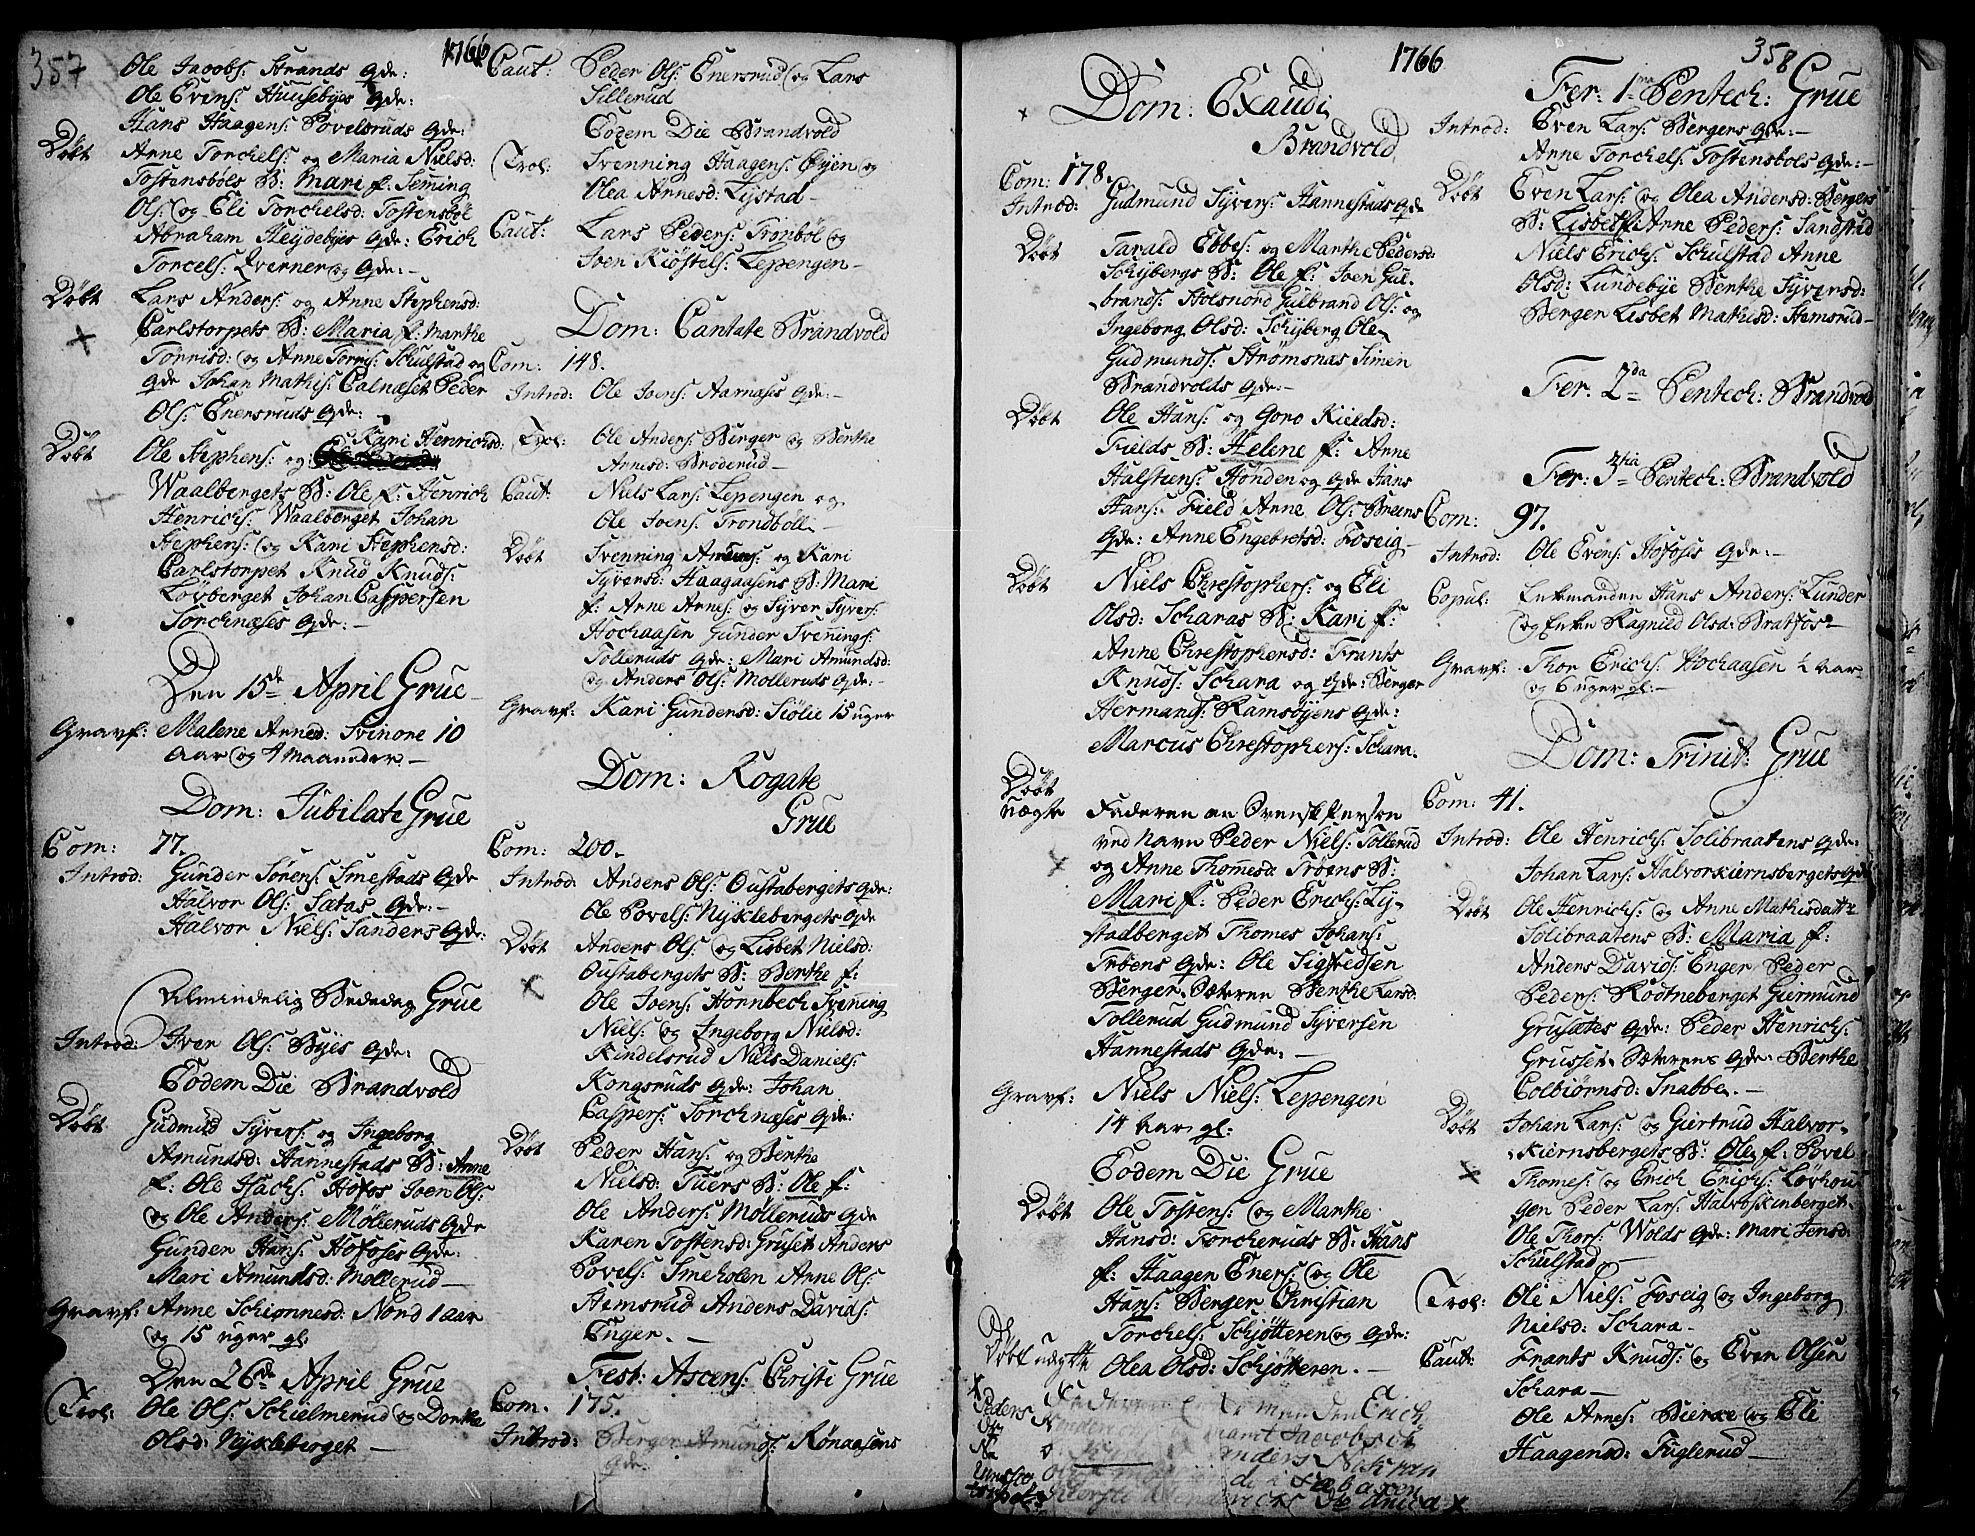 357
1766
Ole Jacobs: Strands Qde:
Ole Evens: Huusebyes Qde:
Hans Haagens: Povelsruds Qde:
Døbt Anne Torchels: og Maria Nielsd:
Tostensbøls B: Mari f: Semming
Ols: og Eli Torchelsd: Tostensbøl
Abraham Heydebyes Qde: Erich
Torcels: Qde:
Døbt Lars Anders: og Anne Stephensd:
Carlstorpets B: Maria f: Marthe
Tønnisd: og Anne Tønnis: Schulstad og
Qde Johan Mathis: Calnæset Peder
Ols: Enersruds Qde:
Døbt Ole Stephens: og Kari Henrichsd:
Waalbergets B: Ole f: Henrich
Henrichs: Waalberget Johan
Stephens: og Kari Stephensd:
Carlstorpet Knud Knuds:
Løvberget Johan Caspersen
Torchnæses Qde:
Den 15de April Grue
Gravf: Malene Arnesd: Svinore 10
Aar og 4 Maaneder
Dom: Jubilate Grue
Com: 77.
Introd: Gunder Sørens: Smestads Qde
Halvor Ols: Sætas Qde:
Halvor Niels: Sanders Qde:
Almindelig Bededag Grue
Introd: Iver Ols: Byes Qde:
Eodem Die Brandvold
Døbt Gudmud Syvers: og Ingeborg
Amundsd: Hannestads B: Anne
f: Ole Isachs: Hofos Joen Ols:
og Ole Anders: Mølleruds Qde
Gunder Hans: Hofoses Qde:
Mari Amundsd: Møllerud
Gravf: Anne Schiønnesd: Nord 1 aar
og 15 uger gl:
Den 26de April Grue
Trol: Ole Ols: Schielmerud og Dorthe
Olsd: Nykleberget
Caut: Peder Ols: Enersrud og Lars
Sillerud
Eodem Die Brandvold
Trol: Svenning Haagens: Øyen og
Olea Arnesd: Lystad
Caut: Lars Peders: Tronbøl og
Joen Kiøstels: Lepengen
Dom: Cantate Brandvold
Com: 148.
Introd: Ole Joens: Aarnæses Qde:
Trol: Ole Anders: Berger og Berthe
Arnesd: Broderud
Caut: Niels Lars: Lepengen og
Ole Joens: Trondbøll
Døbt Svenning Amunds: og Kari
Syversd: Haagaasens B: Mari
f: Arne Arnes: og Syver Syvers:
Hochaasen Gunder Svennings:
Tolleruds Qde: Mari Amundsd:
og Anders Ols: Mølleruds Qde:
Gravf: Kari Gundersd: Siølie 15 uger
Dom: Rogate
Grue
Com: 200.
Introd: Anders Ols: Oustabergets Qde:
Ole Povels: Nyklebergets Qde
Døbt Anders Ols: og Lisbet Nielsd:
Oustabergets B: Berthe f:
Ole Joens: Hornbech Svenning
Niels: og Ingeborg Nielsd:
Kindelsrud Niels Daniels:
Kongsruds Qde: Johan
Caspers: Torchnæses Qde:
Døbt Peder Hans: og Berthe
Nielsd: Tuers B: Ole f:
Ole Anders: Mølleruds Qde
Karen Tostensd: Gruset Anders
Povels: Smeholen Anne Ols:
Hemsrud Anders Davids:
Enger.
Fest: Ascens: Christi Grue
Com. 175.
Introd: Berger Amunds: Rønaasens
Qde.
1766
358
Dom: Exaudi
Brandvold
Com: 178.
Introd: Gudmund Syvers: Hannestads Qde
Døbt Tarald Ebbes: og Marthe Pedersd:
Schybergs B: Ole f: Joen Gul-
brands: Holsnord Gulbrand Ols: og
Ingeborg Olsd: Schyberg Ole
Gudmunds: Strømsnæs Simen
Brandvolds Qde:
Døbt Ole Hans: og Goro Kieldsd:
Fields B: Helene f: Arne
Halstens: Hønden og Qde Hans
Hans: Field Arne Ols: Breens
Qde: Anne Engebretsd: Foseig
Døbt Niels Chrestophers: og Eli
Olsd: Scharas B: Kari f:
Anne Chrestophersd: Frants
Knuds: Schara og Qde: Berger
Hermands: Ramsøyens Qde:
Marcus Chrestophers: Schara.
Døbt uægte Faderen en Svensk Person
ved Navn Peder Niels: Tollerud
og Anne Thomesd: Trøens B:
Mari f: Peder Erichs: Ly-
stadberget Thomes Johans:
Trøens Qde: Ole Sigfredsen
Berger Sæteren Berthe Larsd:
Tollerud Gudmund Syversen
Hannestads Qde:
Gravf: Niels Niels: Lepengen
14 Aar gl:
Eodem Die Grue
Døbt Ole Tostens: og Marthe
Hansd: Torcheruds B: Hans
f: Haagen Eners: og Ole
Hans: Berger Christian
Torchels: Schjøtteren og Qde:
Olea Olsd: Schjøtteren.
Døbt uægte
Faderen Enkemanden Erich
Jacobsd:
Fer: 1ma Pentech: Grue
Introd: Even Lars: Bergers Qde:
Arne Torchels: Tostensbøls Qde:
Døbt Even Lars: og Olea Andersd: Bergers
B: Lisbet f: Arne Peders: Sandstad
Niels Erichs: Schulstad Anne
Olsd: Lundebye Berthe Syversd:
Berger Lisbet Mathisd: Hemsrud
Fer: 2da Pentech: Brandvold
Fer: 3tia Pentech: Brandvold
Com: 97.
Introd: Ole Evens: Hofoses Qde:
Copul: Enkmanden Hans Anders: Lunder
og Enken Ragnild Olsd: Bratfos
Gravf: Thor Erichs: Hochaasen 1/2 aar
og 6 uger gl:
Dom: Trinit: Grue
Com: 41.
Introd: Ole Henrichs: Solibraatens Qde:
Johan Lars: Halvorkiernsbergets Qde
Døbt Ole Henrichs: og Anne Mathisdatter
Solibraatens B: Maria f:
Anders Davids: Enger Peder
Peders: Rødtneberget Giermund
Grusætes Qde: Peder Henrichs:
Grusset Sæterens Qde: Berthe
Colbiørnsd: Snabbe.
Døbt Johan Lars: og Giertrud Halvor-
kiernsbergets B: Ole f: Povel
Thomes: og Erich Erichs: Løvhou-
gen Peder Lars: Halvorskinberget
Ole Thors: Wolds Qde: Mari Jensd:
Schulstad
Trol: Ole Niels: Foseig og Ingeborg
Nielsd: Schara
Caut: Frants Knuds: og Even Olsen
Schara
Ole Arnes: Bierke og Eli
Haagensd: Fuglerud